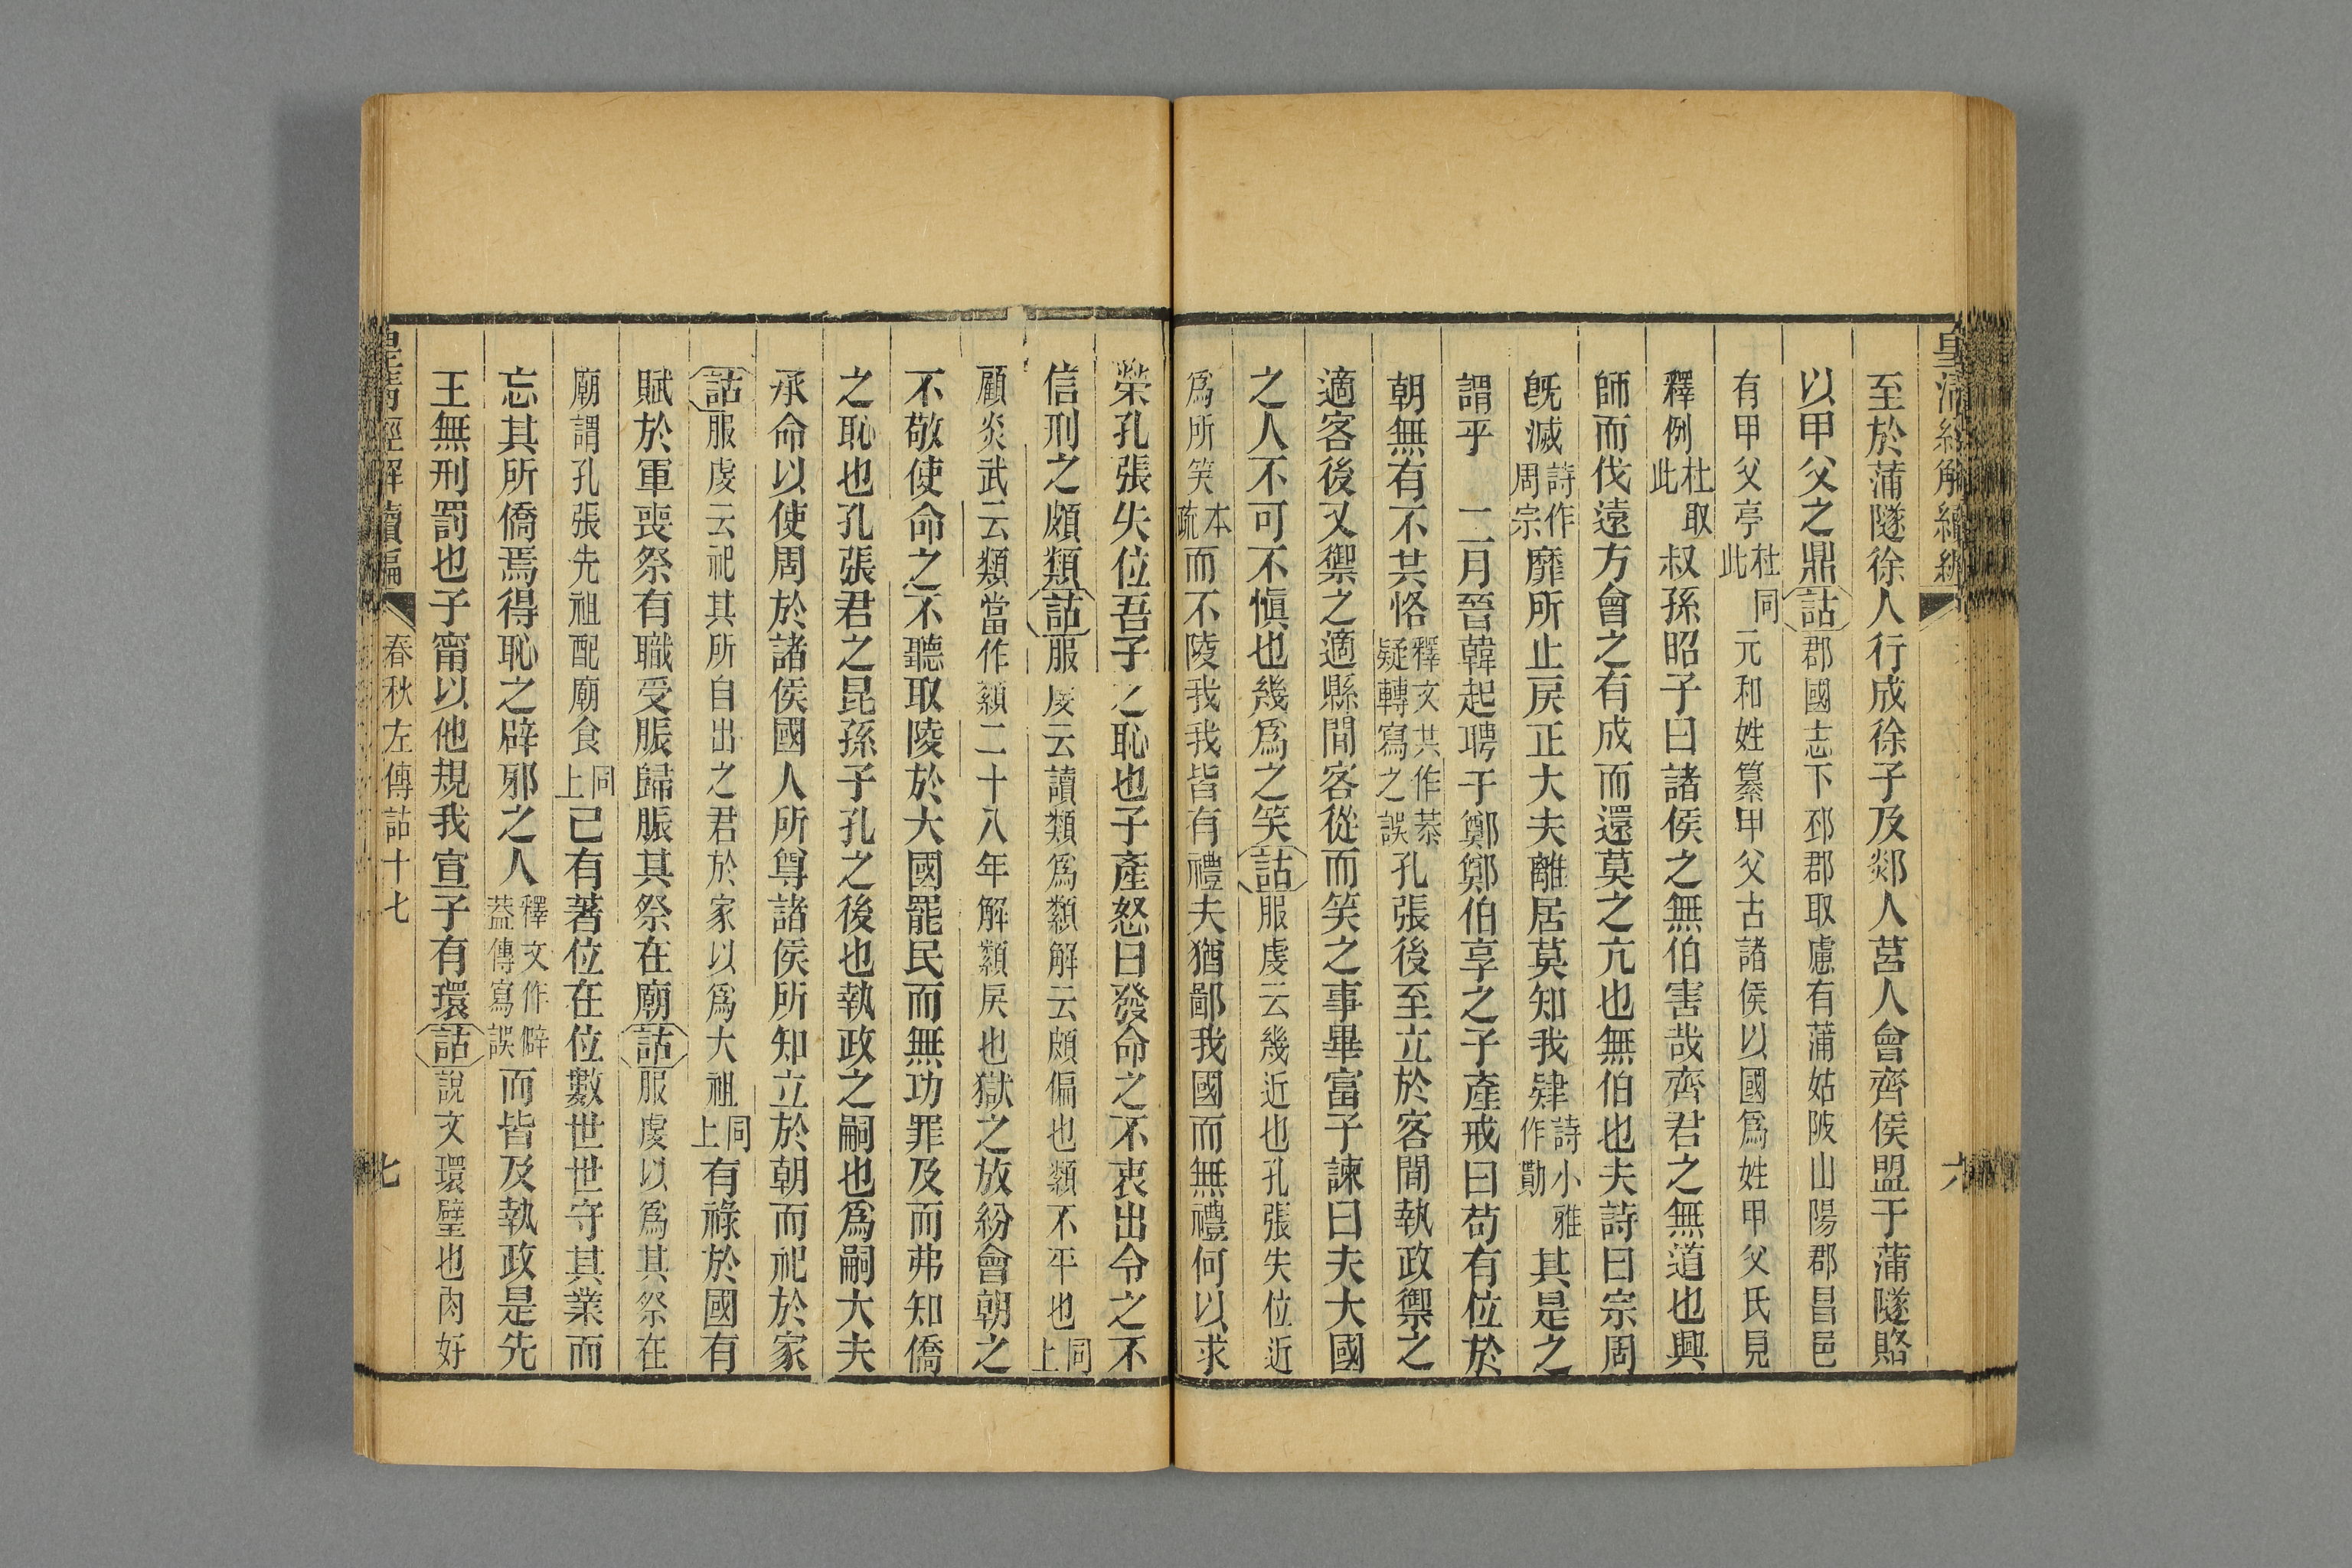 皇清經解續編
六
至於蒲隧徐人行成徐子及郯人莒人會齊侯盟于蒲隧賂
以甲父之鼎詁郡國志下邳郡取慮有蒲姑陂山陽郡昌邑
有甲父亭杜同此元和姓纂甲父古諸侯以國爲姓甲父氏見
釋例杜取此叔孫昭子曰諸侯之無伯害哉齊君之無道也興
師而伐遠方會之有成而還莫之亢也無伯也夫詩曰宗周
旣滅詩作周宗靡所止戾正大夫離居莫知我肄詩小雅作勩其是之
謂乎　二月晉韓起聘于鄭鄭伯享之子產戒曰苟有位於
朝無有不共恪釋文共作恭疑轉寫之誤孔張後至立於客閒執政禦之
適客後又禦之適縣閒客從而笑之事畢富子諫曰夫大國
之人不可不愼也幾爲之笑詁服虔云幾近也孔張失位近
爲所笑本疏而不陵我我皆有禮夫猶鄙我國而無禮何以求
榮孔張失位吾子之恥也子產怒曰發命之不衷出令之不
信刑之頗類詁服虔云讀類爲纇解云頗偏也纇不平也同上
顧炎武云類當作纇二十八年解纇戾也獄之放紛會朝之
不敬使命之不聽取陵於大國罷民而無功罪及而弗知僑
之恥也孔張君之昆孫子孔之後也執政之嗣也爲嗣大夫
承命以使周於諸侯國人所尊諸侯所知立於朝而祀於家
詁服虔云祀其所自出之君於家以爲大祖同上有祿於國有
賦於軍喪祭有職受脤歸脤其祭在廟詁服虔以爲其祭在
廟謂孔張先祖配廟食同上己有著位在位數世世守其業而
忘其所僑焉得恥之辟邪之人釋文作僻葢傳寫誤而皆及執政是先
王無刑罰也子甯以他規我宣子有環詁說文環璧也肉好
皇淸經解續編
春秋左傳詁十七
七